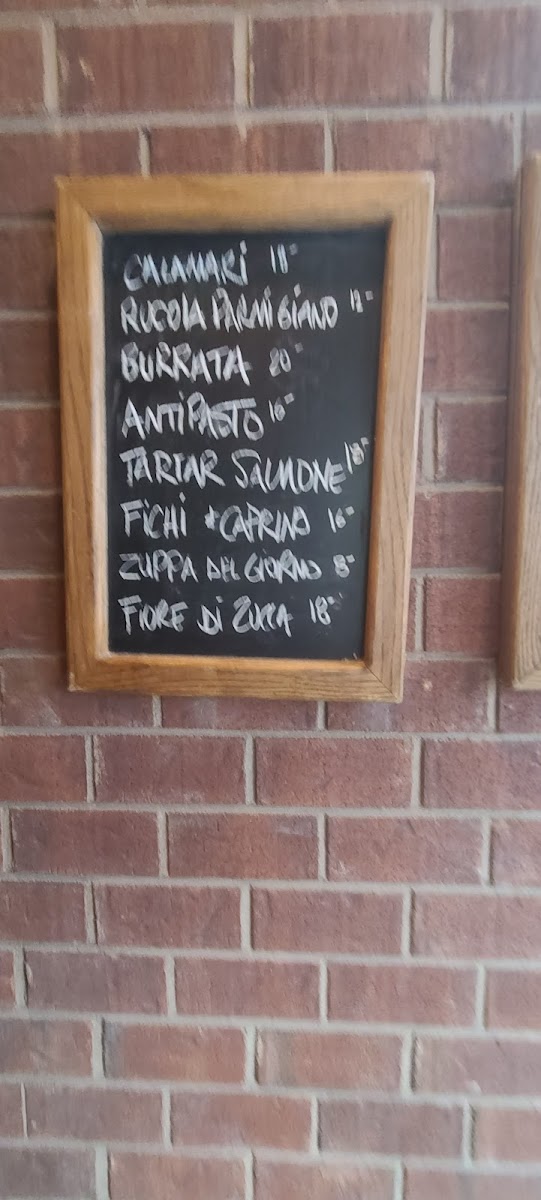 CALAMARI 18=
RUCOLA PARMIGIANO 12=
BURRATA 20=
ANTIPASTO 16=
TARTAR SALMONE 18=
FiCHi + CAPRINO 16=
ZUPPA DEL GIORNO 8=
FIORE Di ZUCCA 18=